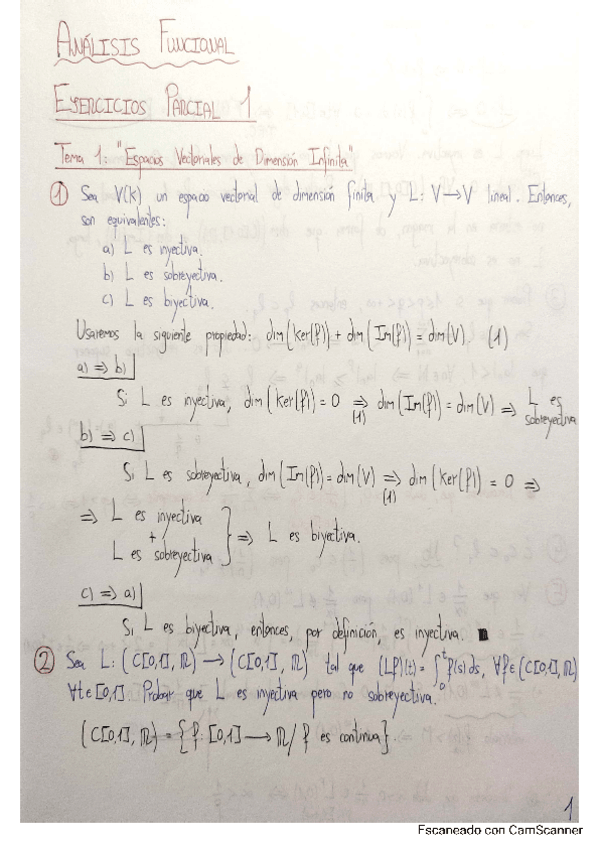 ANÁLISIS FUNCIONAL
EJERCICIOS PARCIAL 1
Tema 1: "Espacios Vectoriales de Dimensión Infinita"
① Sea V(K) un espacio vectorial de dimensión finita y L: V→V lineal. Entonces,
son equivalentes:
a) L es inyectiva.
b) L es sobreyectiva.
c) L es biyectiva.
Usaremos la siguiente propiedad: dim(Ker(f)) + dim(Im(f)) = dim(V). (1)
a) ⇒ b)
Si L es inyectiva, dim(Ker(f)) = 0 ⇒(1) dim(Im(f)) = dim(V) ⇒ L es sobreyectiva
b) ⇒ c)
Si L es sobreyectiva, dim(Im(f)) = dim(V) ⇒(1) dim(Ker(f)) = 0 ⇒
⇒ L es inyectiva
+
L es sobreyectiva } ⇒ L es biyectiva.
c) ⇒ a)
Si L es biyectiva, entonces, por definición, es inyectiva. ■
② Sea L: (C[0,1], ℝ) → (C[0,1], ℝ) tal que (Lf)(t) = ∫₀ᵗ f(s) ds, ∀f ∈ (C[0,1], ℝ)
∀t ∈ [0,1]. Probar que L es inyectiva pero no sobreyectiva.
(C[0,1], ℝ) = { f: [0,1] → ℝ / f es continua }.
1
Escaneado con CamScanner